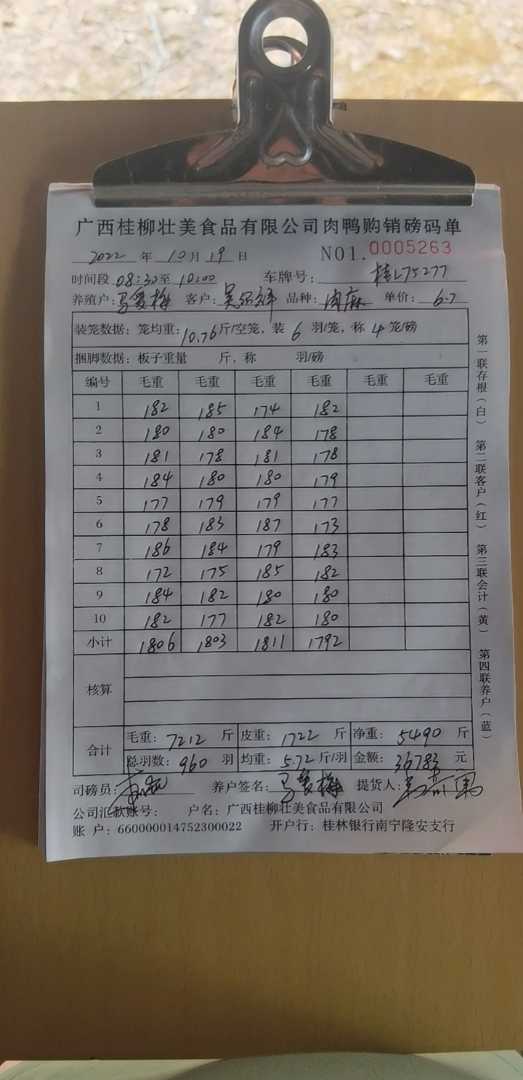 广西桂柳壮美食品有限公司肉鸭购销磅码单
2022 年 10 月 19 日 NO1.0005263
时间段 08:30至 10:00 车牌号: 桂L75277
养殖户: 客户: 品种: 肉麻 单价: 6.7
装笼数据: 笼均重: 10.76斤/空笼, 装 6 羽/笼, 称 4 笼/磅
捆脚数据: 板子重量 斤, 称 羽/磅
编号 毛重 毛重 毛重 毛重 毛重 毛重
1 182 185 174 182
2 180 180 184 178
3 181 178 181 178
4 184 180 180 179
5 177 179 179 177
6 178 183 187 173
7 186 184 179 183
8 172 175 185 182
9 184 182 180 180
10 182 177 182 180
小计 1806 1803 1811 1792
核算
合计 毛重: 7212 斤 皮重: 1722 斤 净重: 5490 斤
总羽数: 960 羽 均重: 5.72 斤/羽 金额: 36783 元
司磅员: 养户签名: 提货人:
公司汇款账号: 户名: 广西桂柳壮美食品有限公司
账 户: 660000014752300022 开户行: 桂林银行南宁隆安支行
第一联存根(白) 第二联客户(红) 第三联会计(黄) 第四联养户(蓝)